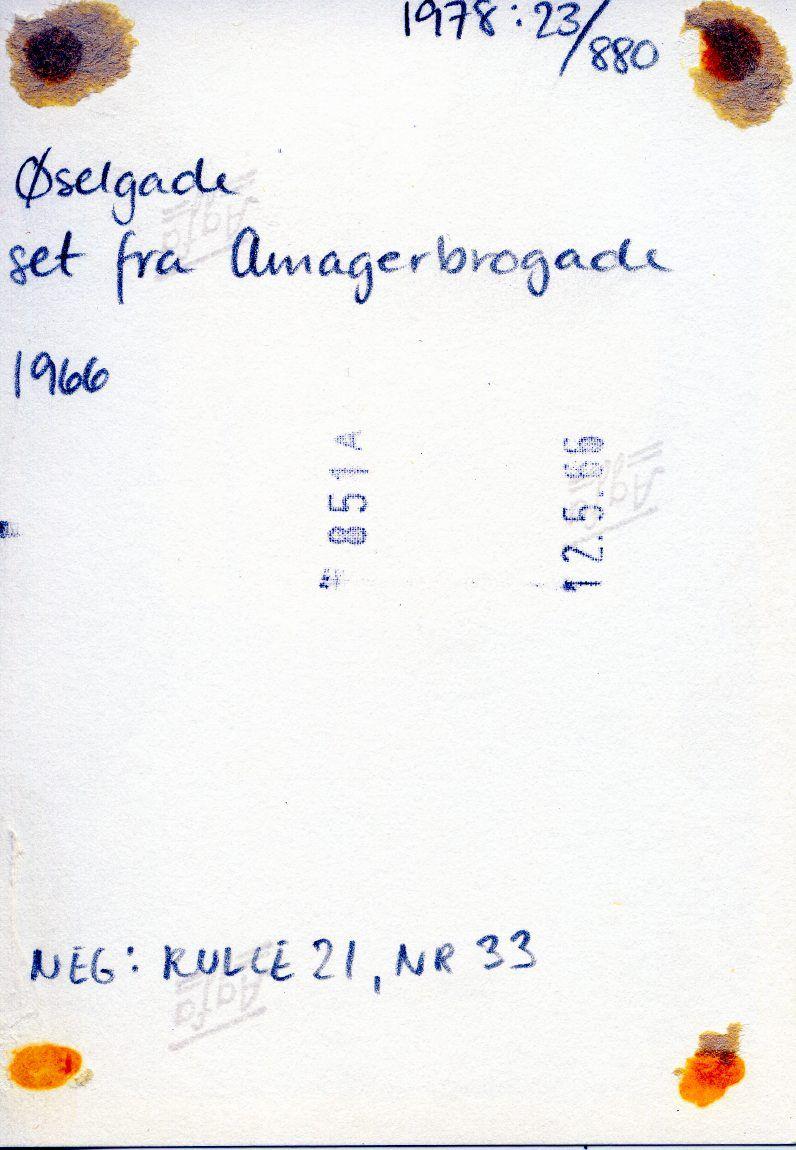 1978:23/880
Øselgade
set fra Amagerbrogade
1966
851A
12.5.66
NEG: RULLE 21, NR 33
Agfa
Agfa
Agfa